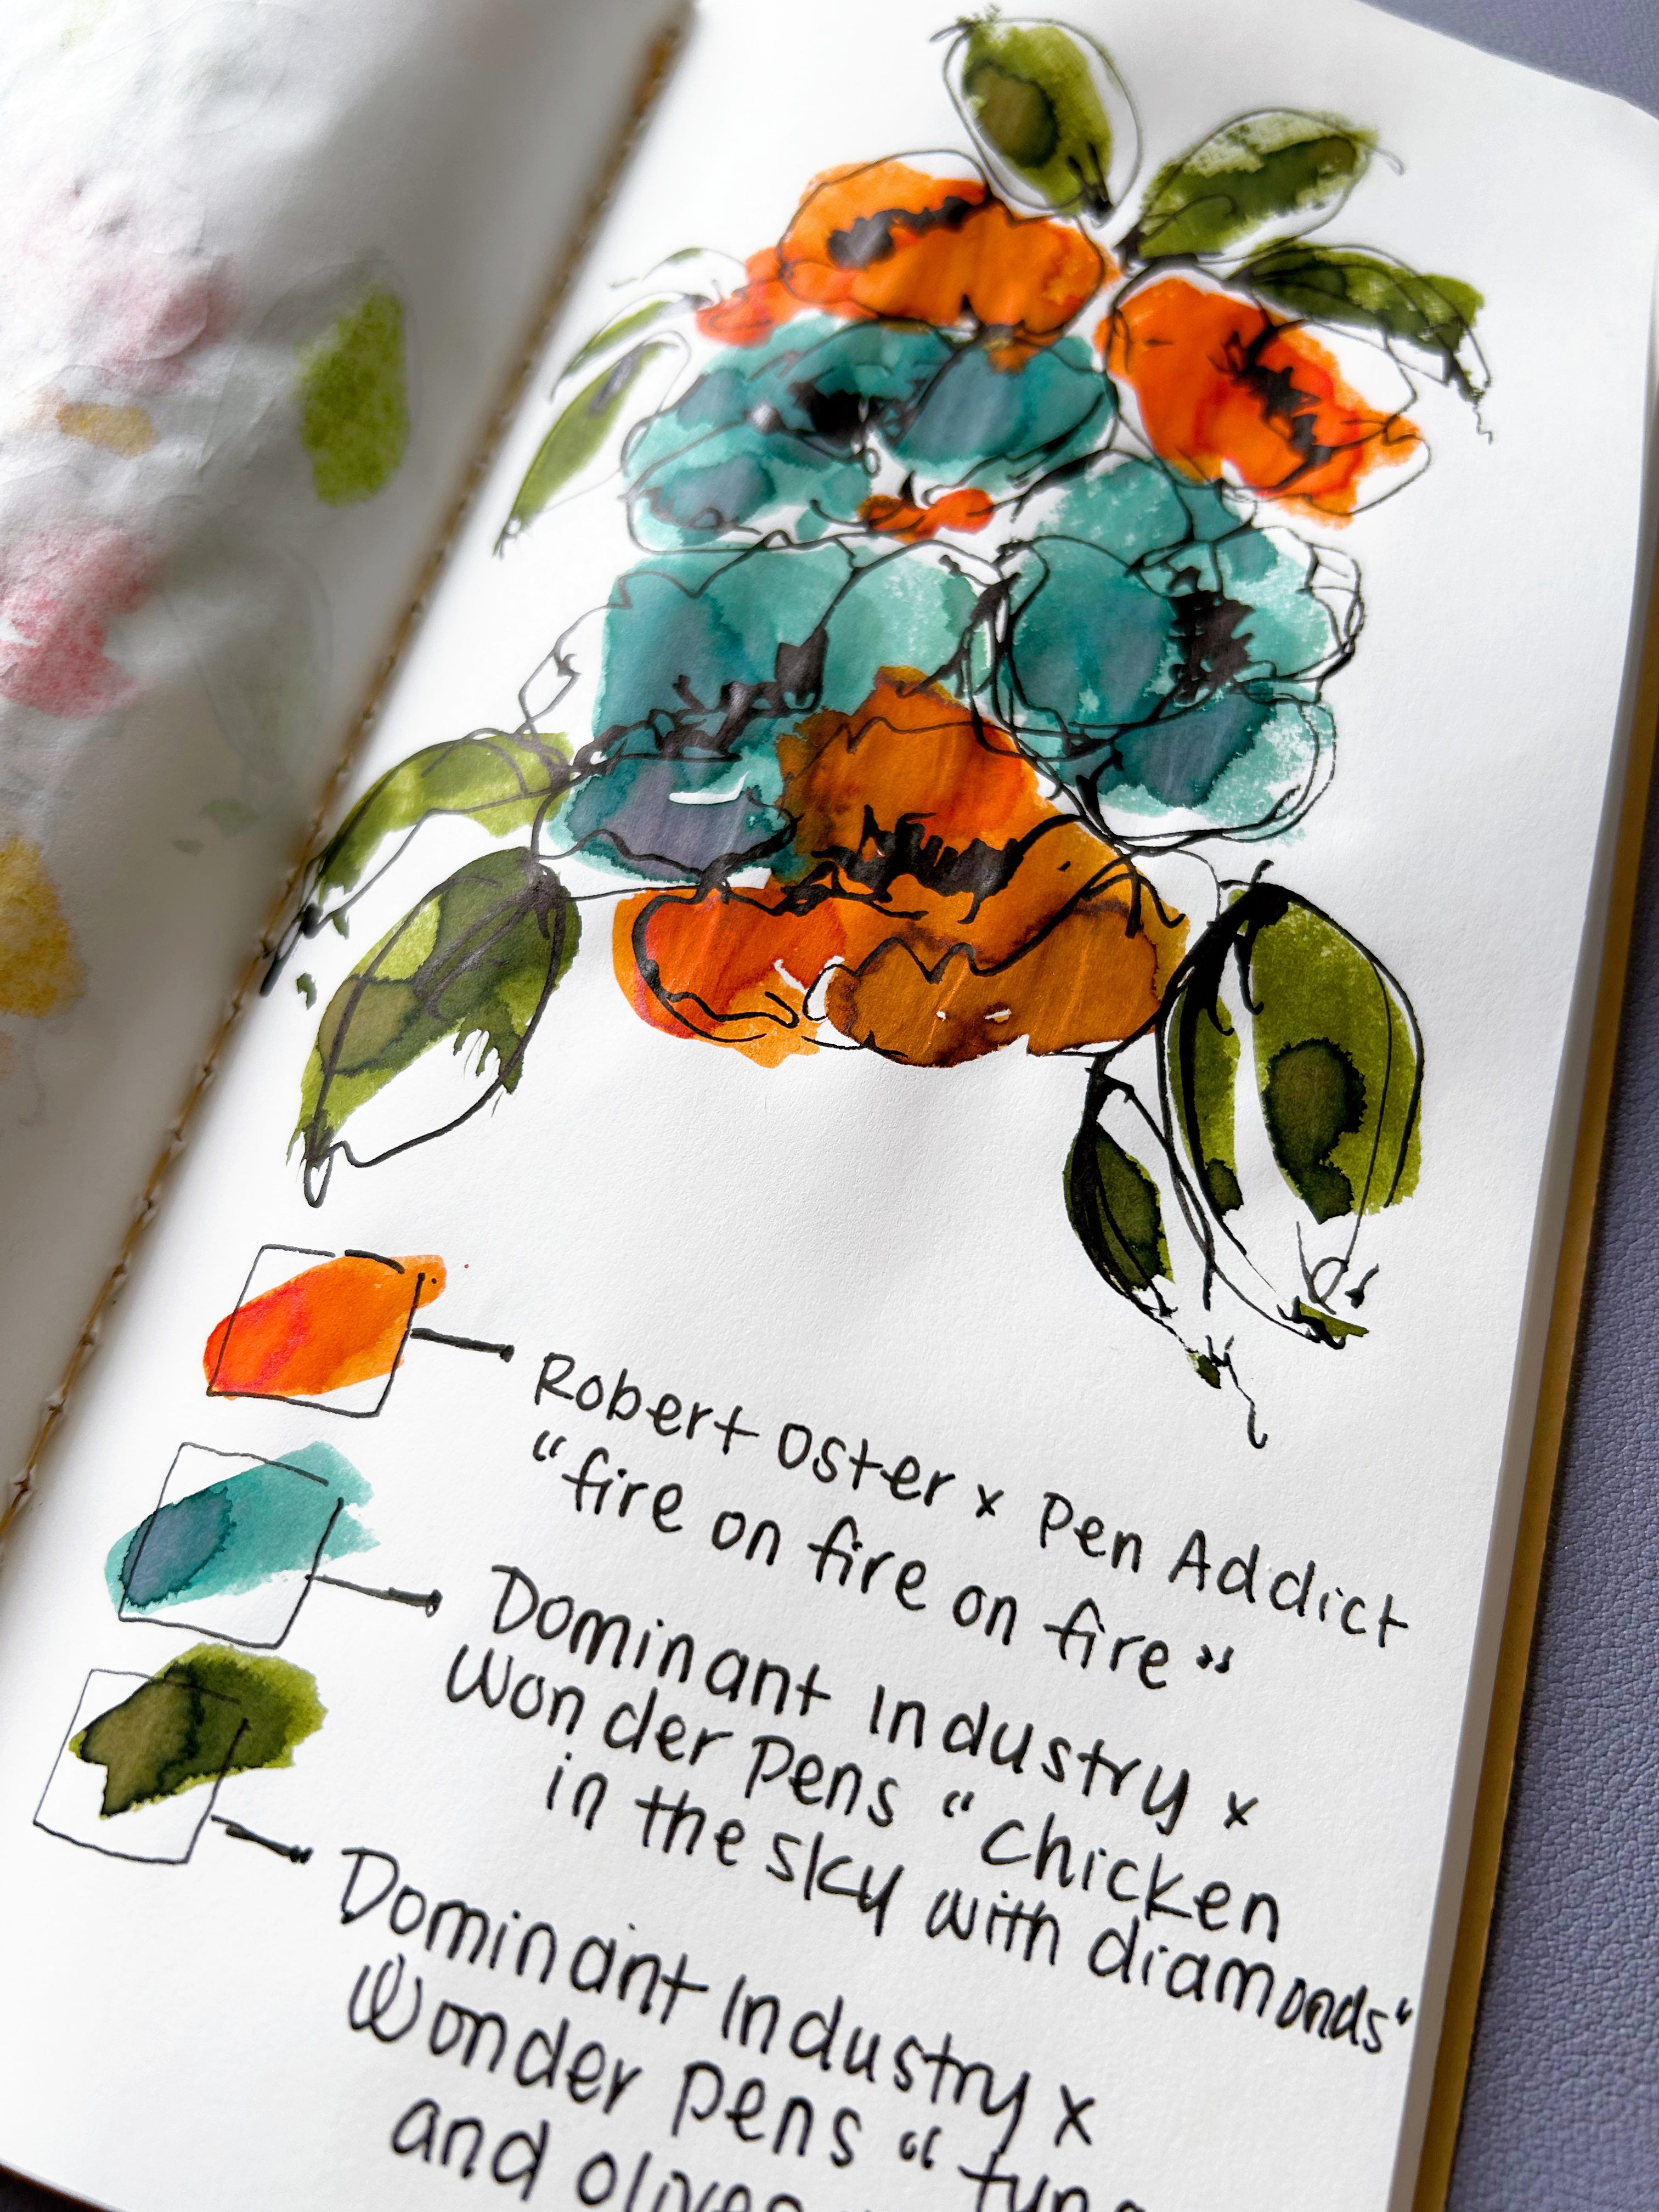 Robert Oster x Pen Addict
"fire on fire on fire"
Dominant Industry x
Wonder Pens "Chicken
in the sky with diamonds"
Dominant Industry x
Wonder Pens "
and